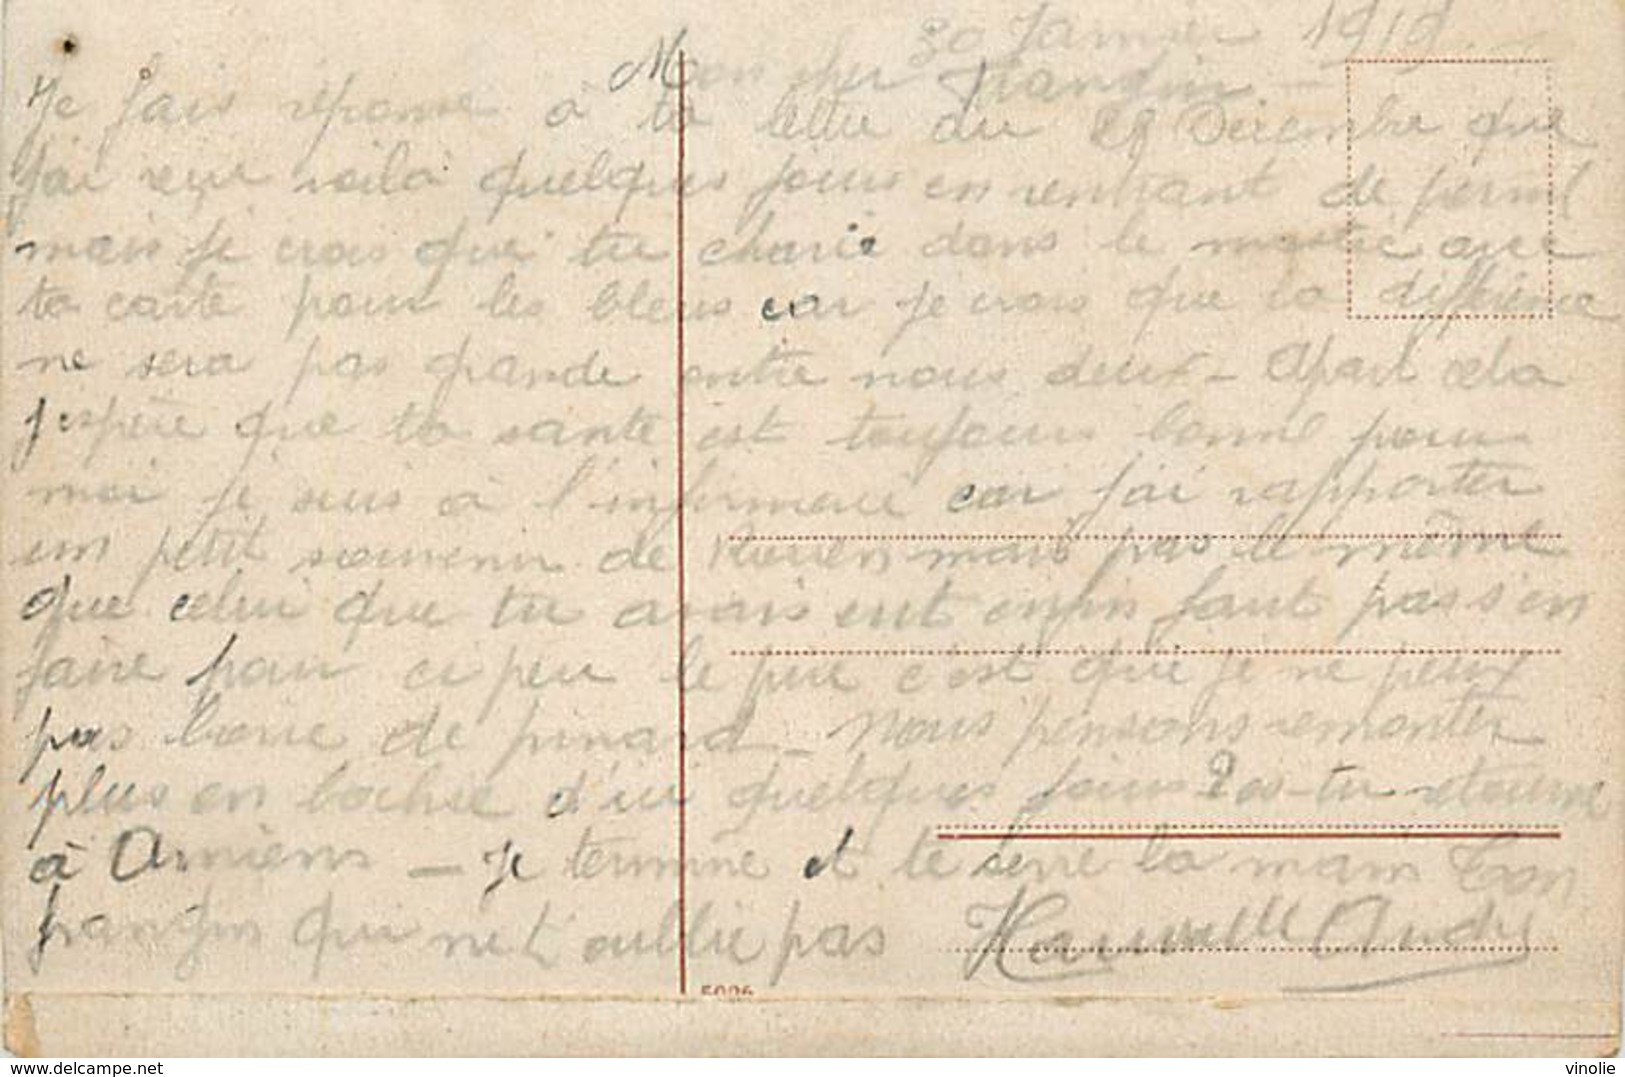 30 Janvier 1919.
Mon cher frangin -
Je fais réponse à ta lettre du 28 Décembre que
j'ai reçu voila quelques jours en rentrant de perm
mais je crois que tu charie dans le mastic avec
ta carte pour les bleus car je crois que la différence
ne sera pas grande entre nous deux - Apart cela
j'espère que ta santé est toujours bonne pour
moi je suis à l'infirmerie car j'ai rapporter
un petit souvenir de Rouen mais pas le même
que celui que tu avais eut enfin faut pas s'en
faire pour ci peu le pire c'est que je ne peux
pas boire de pinard - Nous pensons remonter
plus en bochie d'ici quelques jours Pas-tu retourné
à Amiens - Je termine et te serre la main Ton
frangin qui ne t'oublie pas André
5026
delcampe.net
vinolie